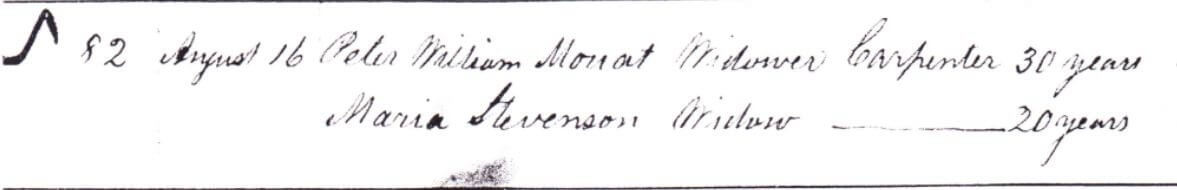 82 August 16 Peter William Mouat Widower Carpenter 30 years
Maria Stevenson Widow ———— 20 years